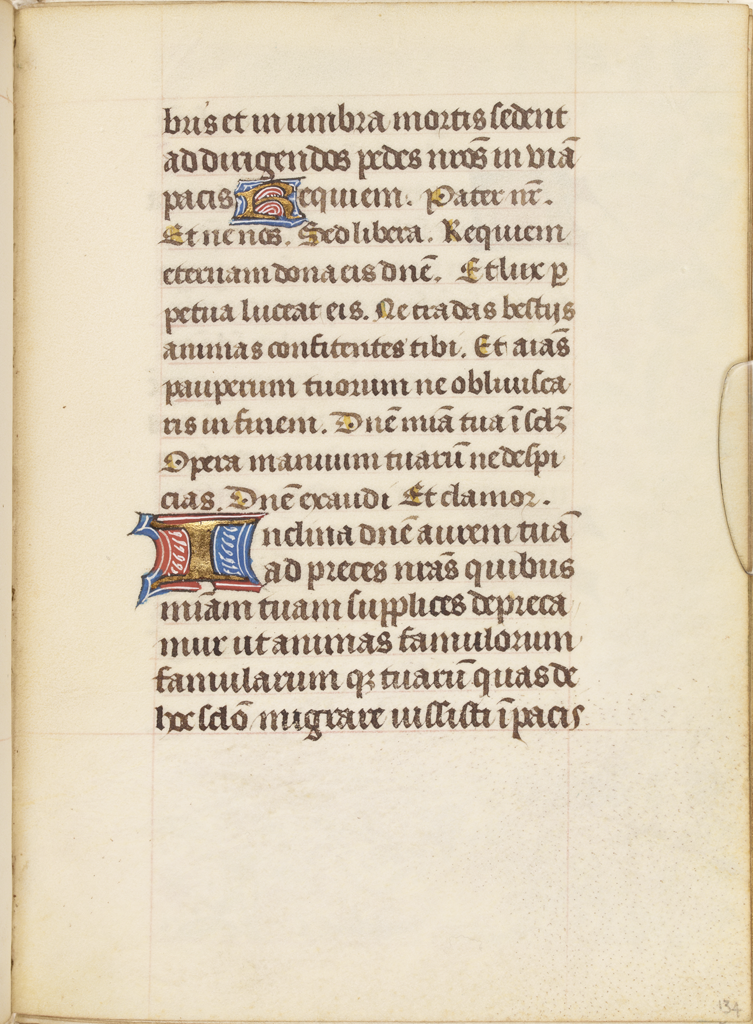 bus et in umbra mortis sedent
ad dirigendos pedes nr̄os in viā
pacis Requiem. Pater nr̄.
Et ne nos. Sed libera. Requiem
eternam dona eis dn̄e. Et lux ꝑ
petua luceat eis. Ne tradas bestijs
animas confitentes tibi. Et aīas
pauperum tuorum ne obliuisca
ris in finem. Dn̄e mīa tua ī sclꝫ
Opera manuum tuarū ne despi
cias. Dn̄e exaudi Et clamor.
Inclina dn̄e aurem tuā
ad preces nr̄as quibus
miām tuam supplices depreca
mur ut animas famulorum
famularum qꝫ tuarū quas de
hoc sclō migrare iussisti ī pacis
134